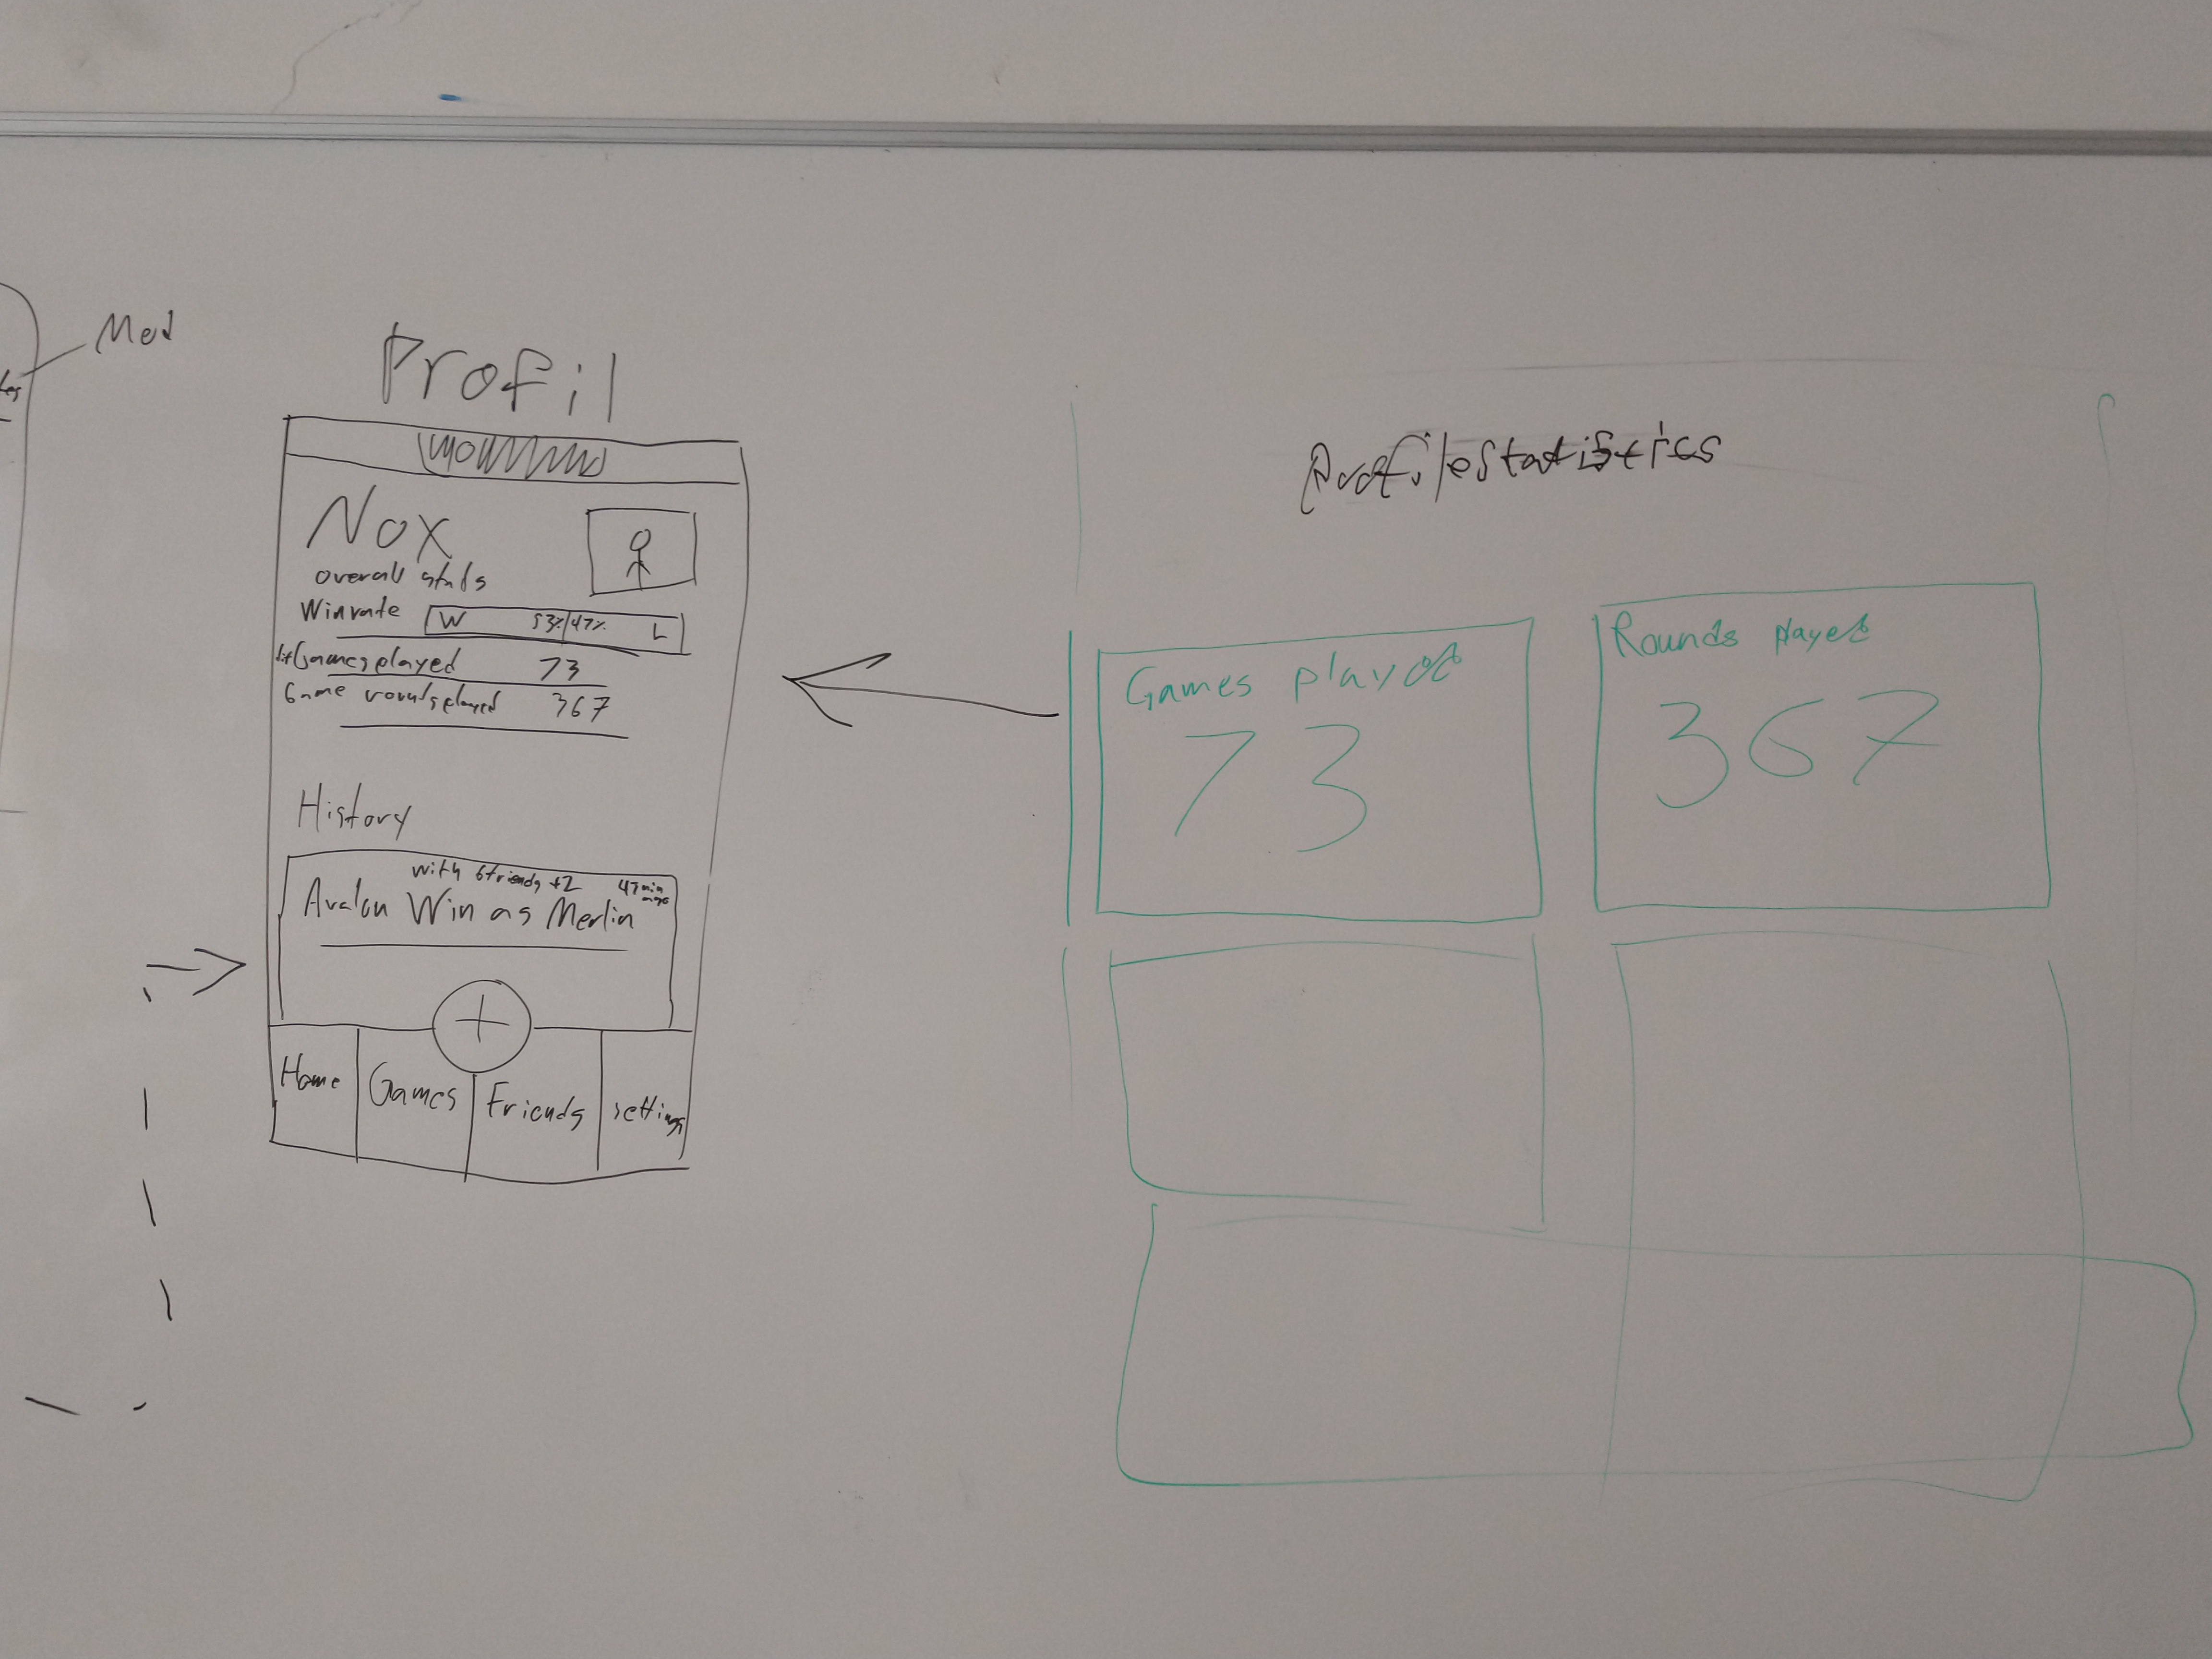 Med
Profil
Nox
overall stats
Winrate W 53%/47% L
dif Games played 73
Game rounds played 367
History
with 6 friends +2 47 min ago
Avalon Win as Merlin
Home Games Friends settings
Profile Statistics
Games played
73
Rounds played
367